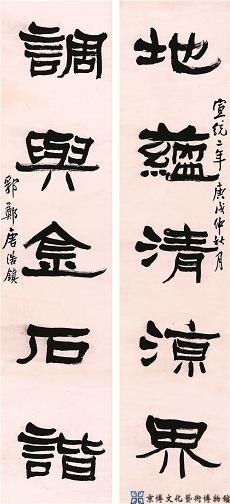 地蘊清涼界
宣統二年庚戌仲秋月
調與金石諧
鄂鄭唐浩鎮
京博文化藝術博物館